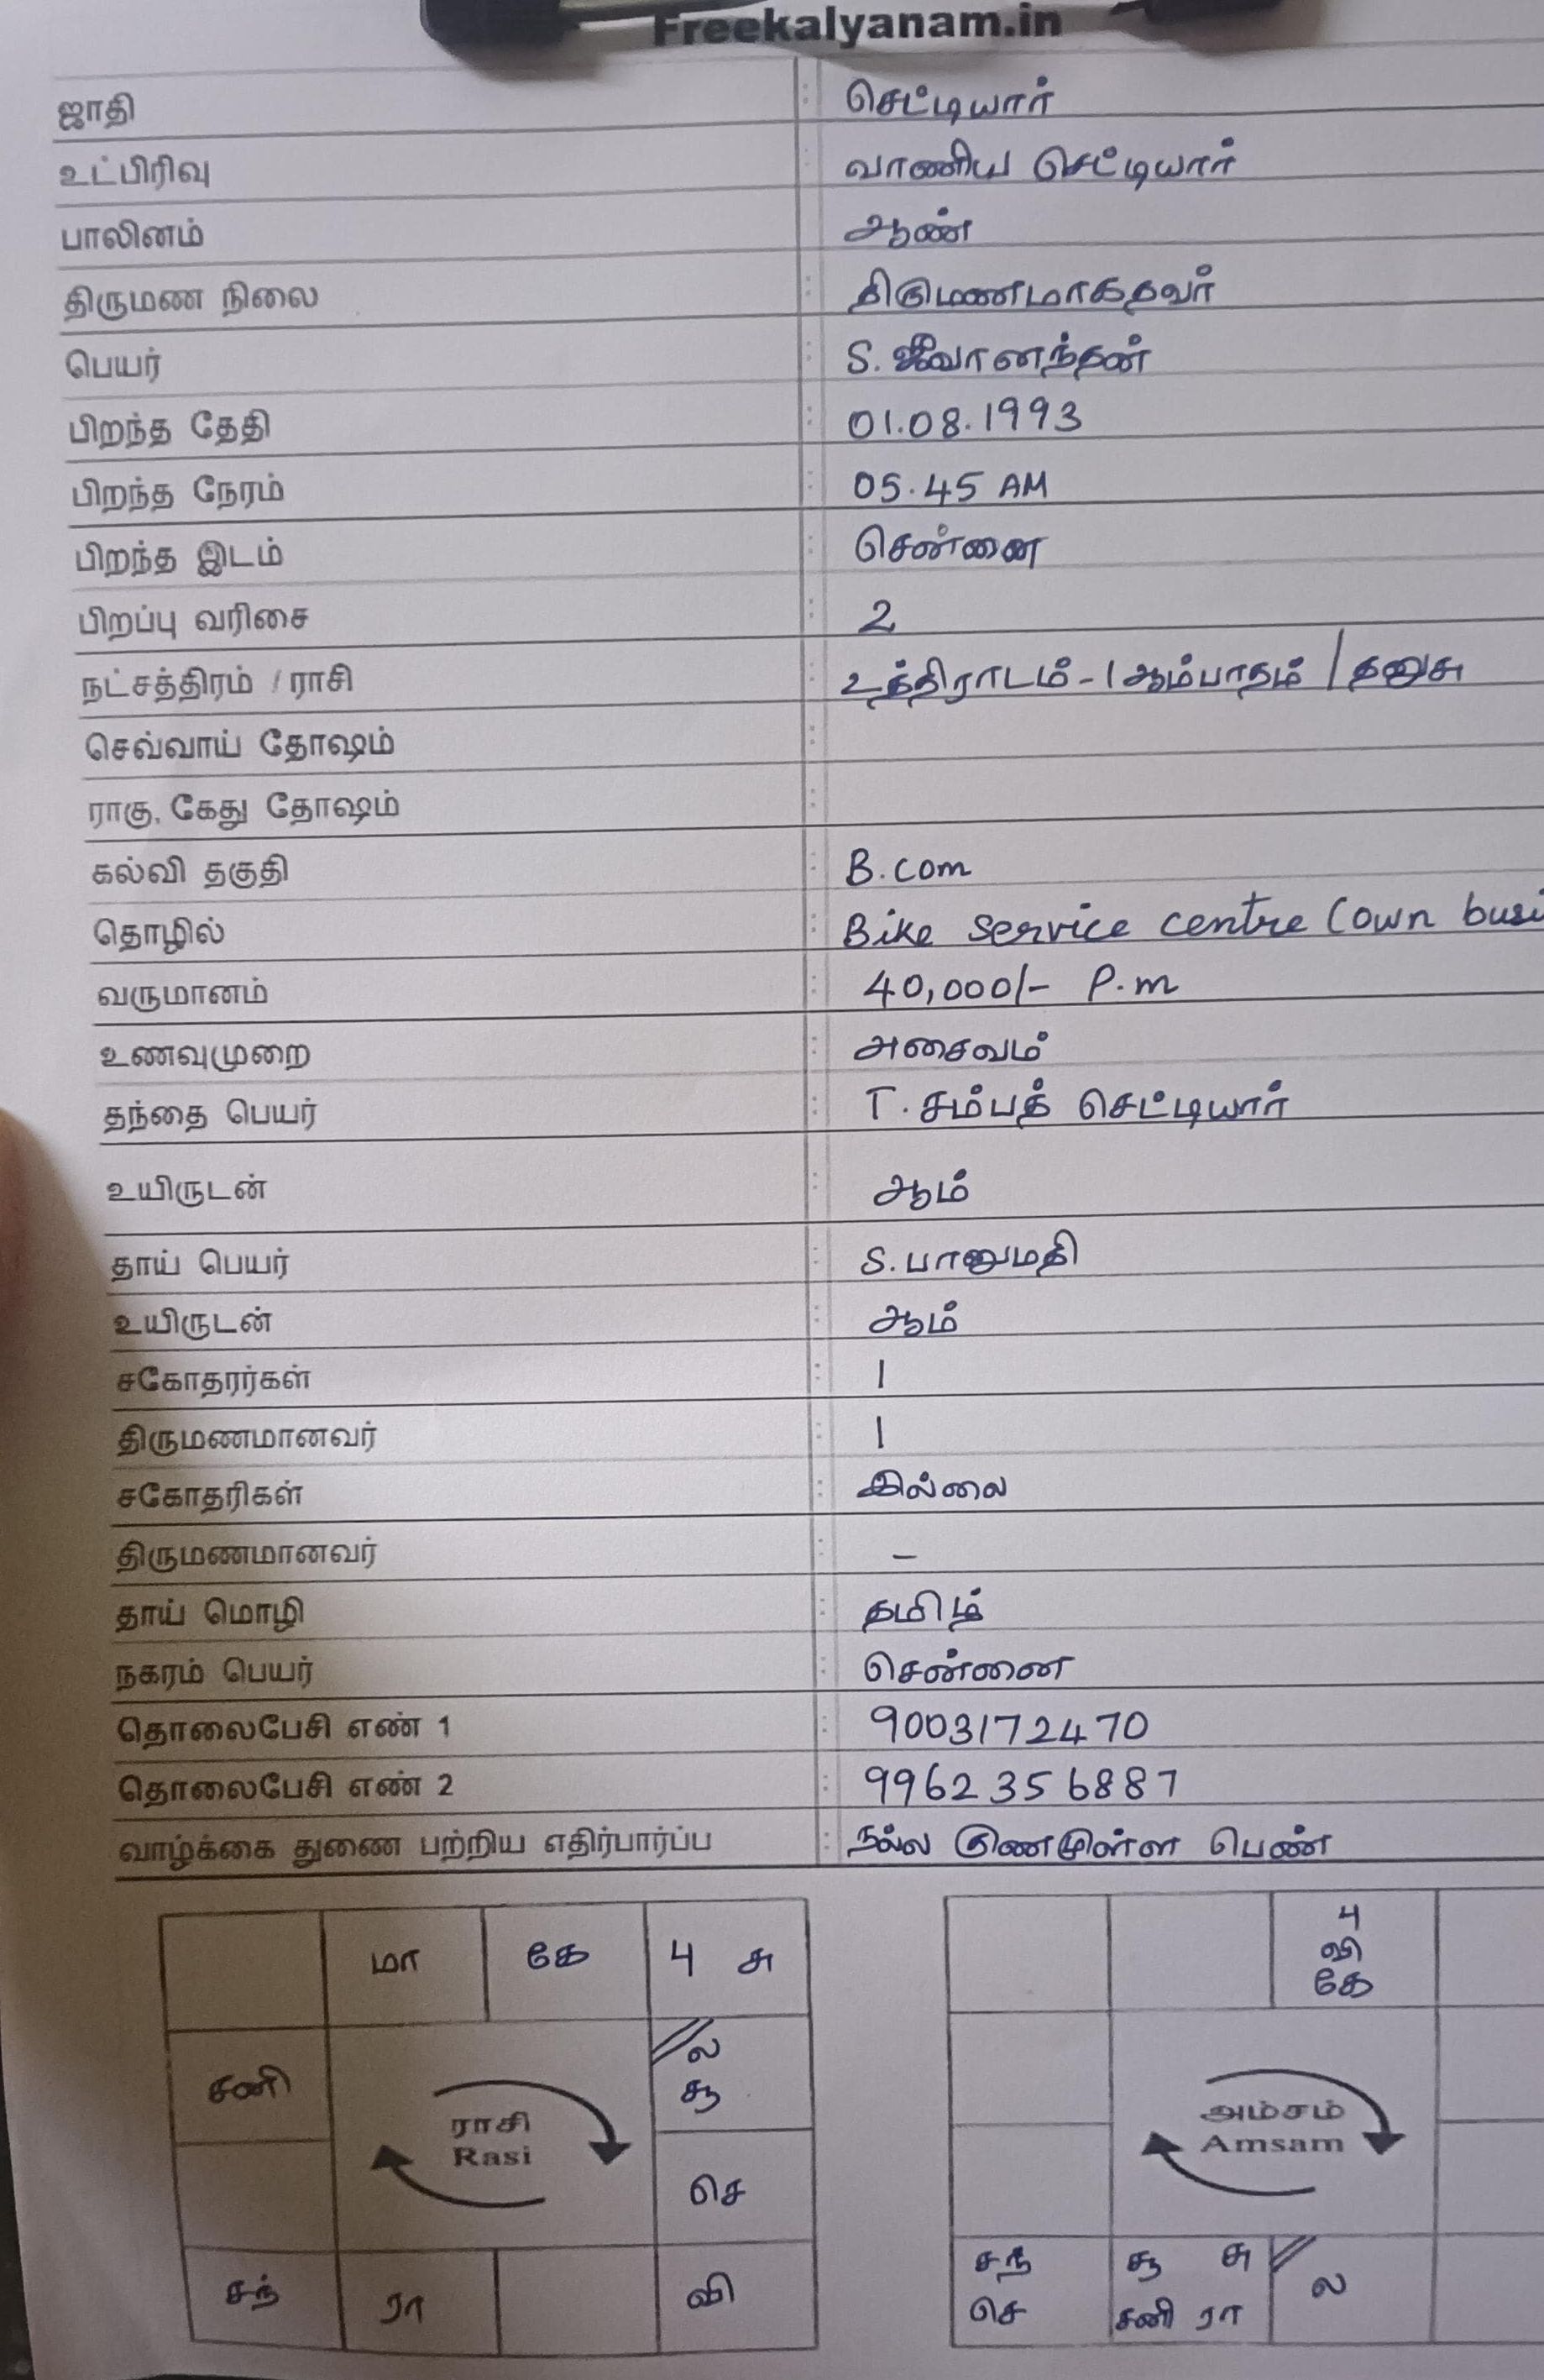 Freekalyanam.in
ஜாதி : செட்டியார்
உட்பிரிவு : வாணிய செட்டியார்
பாலினம் : ஆண்
திருமண நிலை : திருமணமாகதவர்
பெயர் : S. ஜீவானந்தன்
பிறந்த தேதி : 01.08.1993
பிறந்த நேரம் : 05.45 AM
பிறந்த இடம் : சென்னை
பிறப்பு வரிசை : 2
நட்சத்திரம் / ராசி : உத்திராடம் - 1 ஆம்பாதம் / தனுசு
செவ்வாய் தோஷம் :
ராகு, கேது தோஷம் :
கல்வி தகுதி : B.com
தொழில் : Bike service centre (own busi
வருமானம் : 40,000/- P.m
உணவுமுறை : அசைவம்
தந்தை பெயர் : T. சம்பத் செட்டியார்
உயிருடன் : ஆம்
தாய் பெயர் : S. பானுமதி
உயிருடன் : ஆம்
சகோதரர்கள் : 1
திருமணமானவர் : 1
சகோதரிகள் : இல்லை
திருமணமானவர் : -
தாய் மொழி : தமிழ்
நகரம் பெயர் : சென்னை
தொலைபேசி எண் 1 : 9003172470
தொலைபேசி எண் 2 : 9962356887
வாழ்க்கை துணை பற்றிய எதிர்பார்ப்ப : நல்ல குணமுள்ள பெண்
மா கே பு சு
சனி ல
சூ
ராசி
Rasi
செ
சந் ரா வி
பு
வி
கே
அம்சம்
Amsam
சந் சூ சு ல
செ சனி ரா